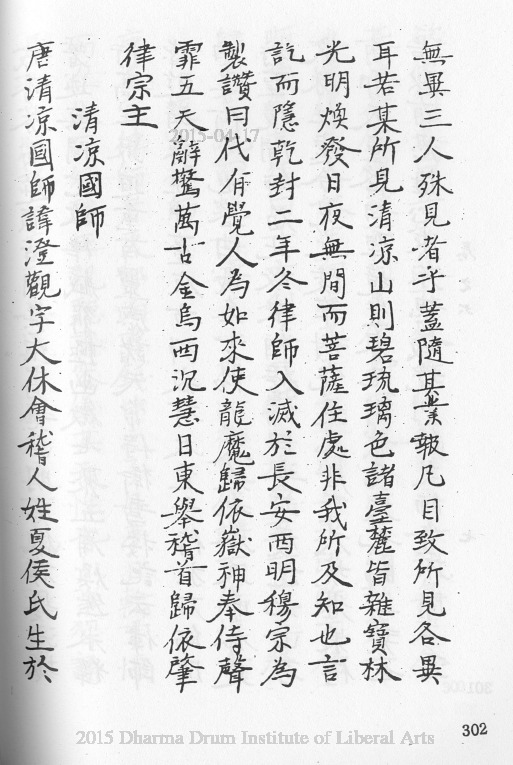 無異三人殊見者乎蓋隨其業報凡目致所見各異
耳若某所見清凉山則碧琉璃色諸臺麓皆雜寶林
光明煥發日夜無間而菩薩住處非我所及知也言
訖而隱乾封二年冬律師入滅於長安西明穆宗為
製讚曰代有覺人為如來使龍魔歸依嶽神奉侍聲
霏五天辭驚萬古金烏西沉慧日東舉稽首歸依肇
律宗主
清凉國師
唐清凉國師諱澄觀字大休會稽人姓夏侯氏生於
302
2015-04-17
2015 Dharma Drum Institute of Liberal Arts